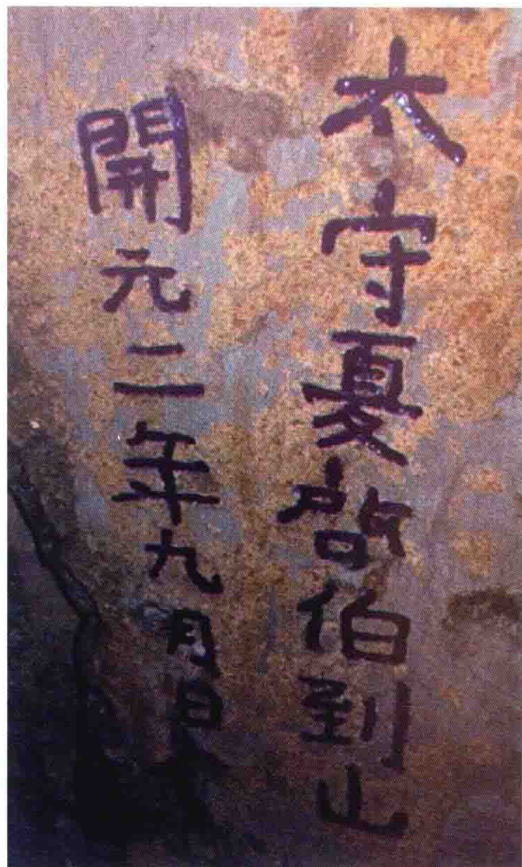 太守夏啓伯到山
開元二年九月日